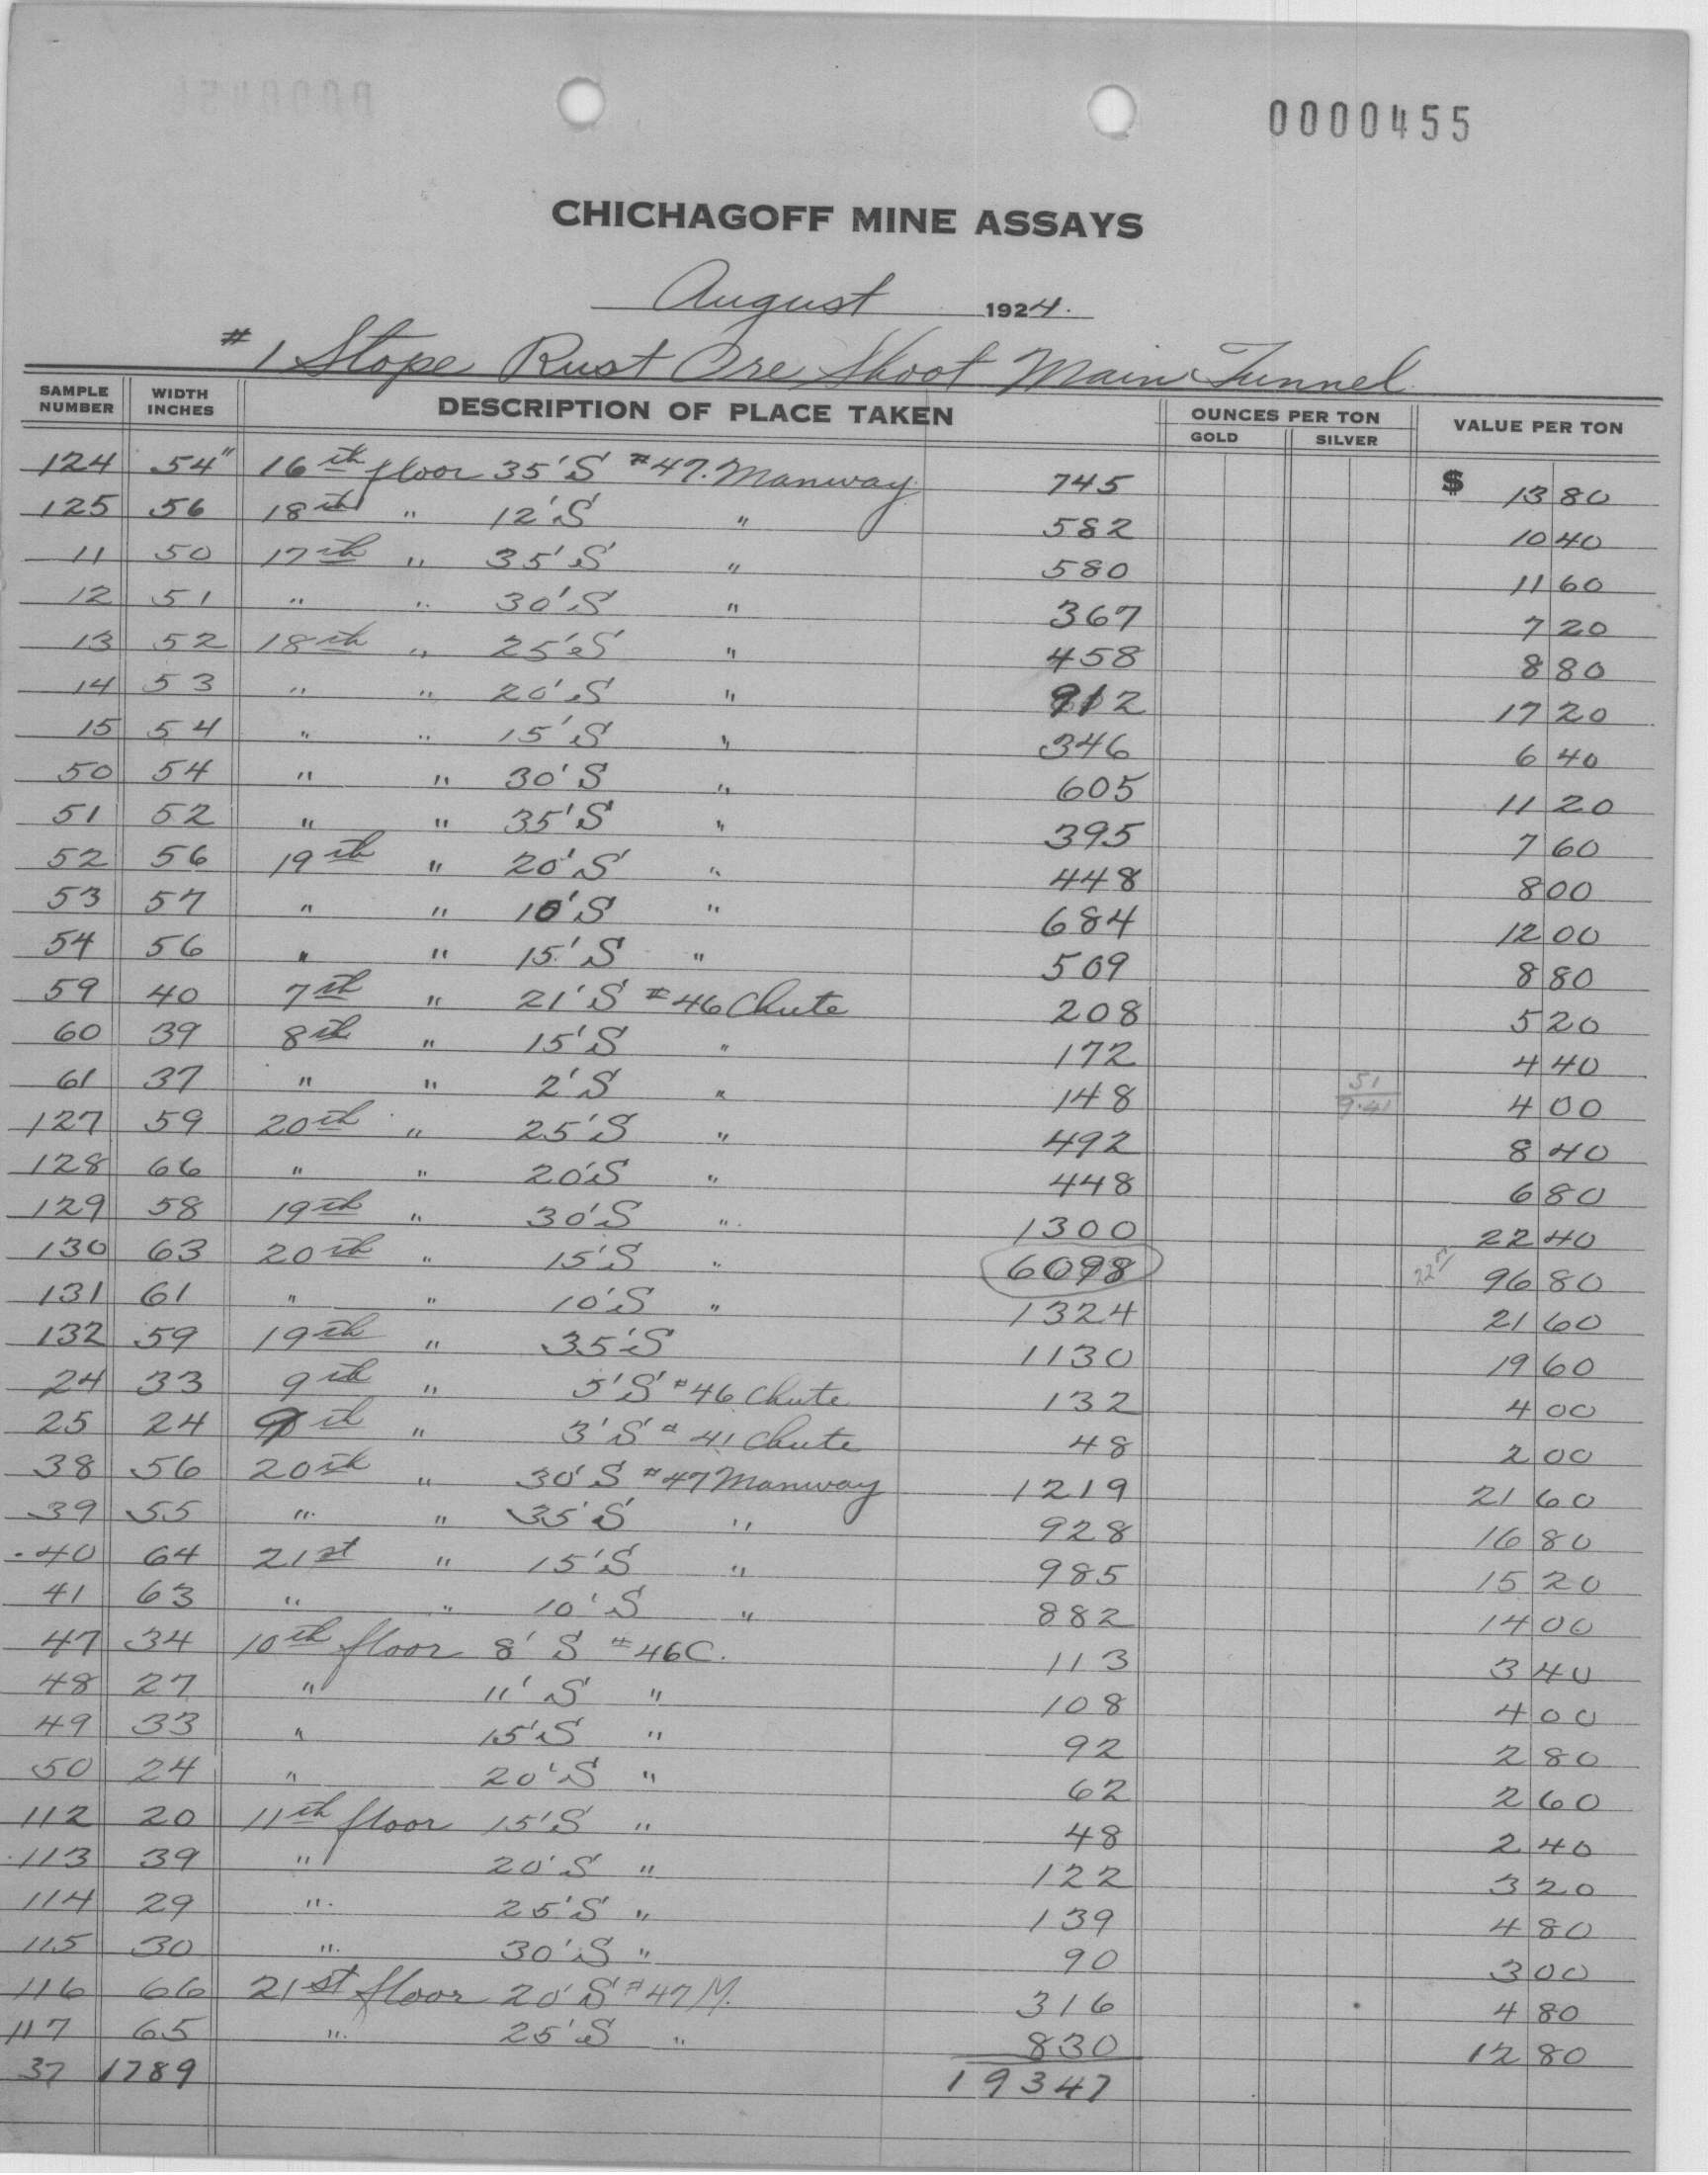 0000455
CHICHAGOFF MINE ASSAYS
August 1924.
#1 Stope Rust Ore Shoot Main Tunnel
SAMPLE NUMBER WIDTH INCHES DESCRIPTION OF PLACE TAKEN OUNCES PER TON GOLD SILVER VALUE PER TON
124 54" 16th floor 35'S #47. Manway 745 $ 13 80
125 56 18th " 12'S " 582 10 40
11 50 17th " 35'S " 580 11 60
12 51 " " 30'S " 367 7 20
13 52 18th " 25'S " 458 8 80
14 53 " " 20'S " 912 17 20
15 54 " " 15'S " 346 6 40
50 54 " " 30'S " 605 11 20
51 52 " " 35'S " 395 7 60
52 56 19th " 20'S " 448 8 00
53 57 " " 10'S " 684 12 00
54 56 " " 15'S " 509 8 80
59 40 7th " 21'S #46 Chute 208 5 20
60 39 8th " 15'S " 172 4 40
61 37 " " 2'S " 148 51 9.41 4 00
127 59 20th " 25'S " 492 8 40
128 66 " " 20'S " 448 6 80
129 58 19th " 30'S " 1300 22 40
130 63 20th " 15'S " 6098 96 80
131 61 " " 10'S " 1324 21 60
132 59 19th " 35'S 1130 19 60
24 33 9th " 5'S #46 Chute 132 4 00
25 24 9th " 3'S # 41 Chute 48 2 00
38 56 20th " 30'S #47 Manway 1219 21 60
39 55 " " 35'S " 928 16 80
40 64 21st " 15'S " 985 15 20
41 63 " " 10'S " 882 14 00
47 34 10th floor 8' S #46C. 113 3 40
48 27 " 11'S " 108 4 00
49 33 " 15'S " 92 2 80
50 24 " 20'S " 62 2 60
112 20 11th floor 15'S " 48 2 40
113 39 " 20'S " 122 3 20
114 29 " 25'S " 139 4 80
115 30 " 30'S " 90 3 00
116 66 21st floor 20'S #47 M. 316 4 80
117 65 " 25'S " 830 12 80
37 1789 19347